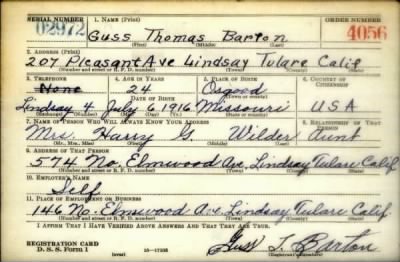 SERIAL NUMBER 1. NAME (Print) ORDER NUMBER
02972 Guss Thomas Barton 4056
(First) (Middle) (Last)
2. ADDRESS (Print)
207 Pleasant Ave Lindsay Tulare Calif
(Number and street or R. F. D. number) (Town) (County) (State)
3. TELEPHONE 4. AGE IN YEARS 5. PLACE OF BIRTH 6. COUNTRY OF CITIZENSHIP
None 24 Osgood
DATE OF BIRTH
Lindsay 4 July 6 1916 Missouri USA
7. NAME OF PERSON WHO WILL ALWAYS KNOW YOUR ADDRESS 8. RELATIONSHIP OF THAT PERSON
Mrs. Harry G. Wilder Aunt
(Mr., Mrs., Miss) (First) (Middle) (Last)
9. ADDRESS OF THAT PERSON
574 No. Elmwood Ave. Lindsay Tulare Calif
(Number and street or R. F. D. number) (Town) (County) (State)
10. EMPLOYER'S NAME
Self
11. PLACE OF EMPLOYMENT OR BUSINESS
146 No. Elmwood Ave Lindsay Tulare Calif.
(Number and street or R. F. D. number) (Town) (County) (State)
I AFFIRM THAT I HAVE VERIFIED ABOVE ANSWERS AND THAT THEY ARE TRUE.
REGISTRATION CARD
D. S. S. Form 1 (over) Guss T. Barton